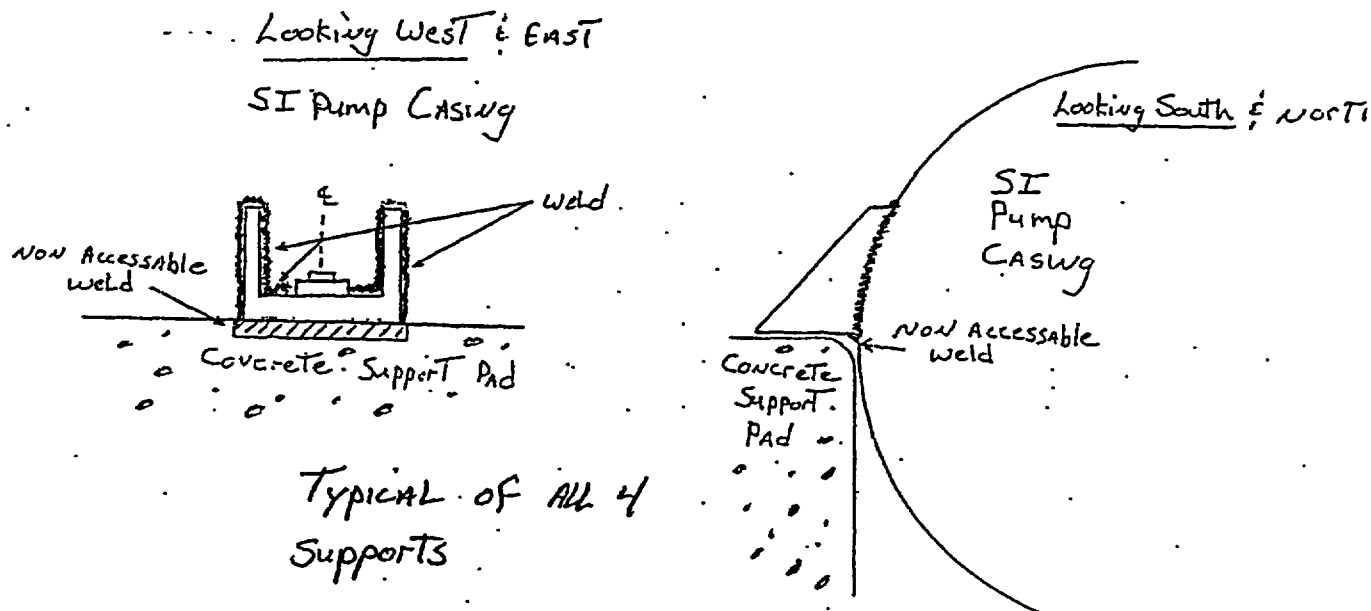 Looking West & EAST
SI Pump CASING
℄
weld
NON Accessable
weld
Concrete Support Pad
Typical of ALL 4
Supports
Looking South & NortH
SI
Pump
CASING
NON Accessable
weld
Concrete
Support
PAd